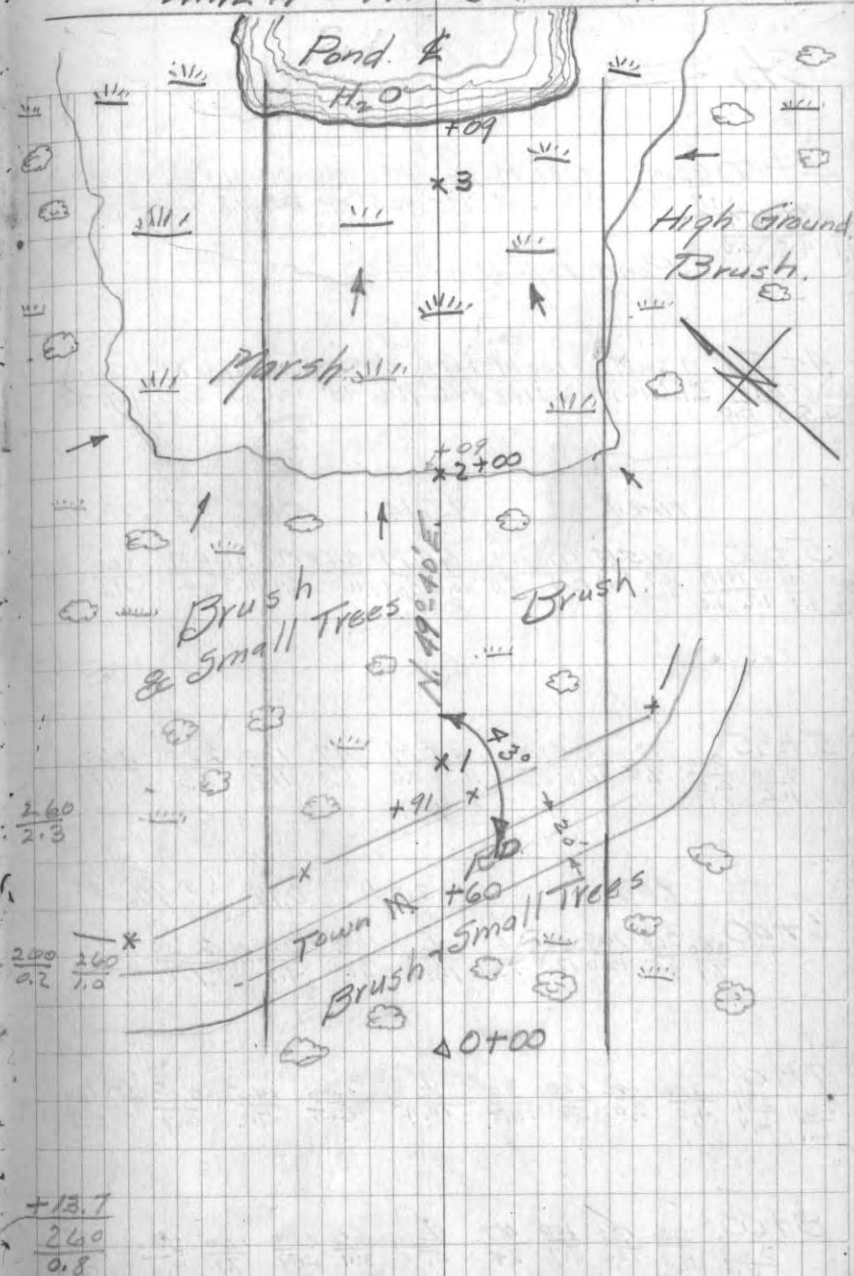 Pond. ℄
H₂O
+09
x 3
High Ground
Brush.
Marsh.
+09
x 2+00
N. 49°-40' E.
Brush
& Small Trees
Brush.
430
x 1
+91
260
2.3
20'
RD.
+60
Town
Brush - Small Trees
200
0.2
260
1.0
△ 0+00
+13.7
260
0.8